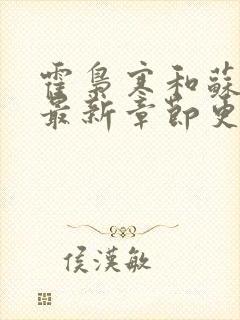 霍梟寒和蘇
最新章節更
侯漢敏